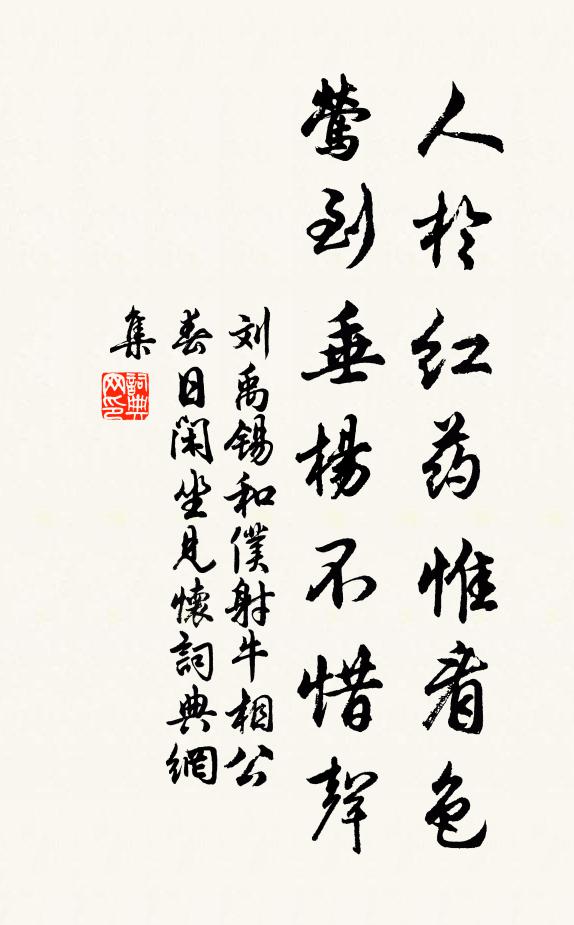 人於红药惟看色
莺到垂楊不惜聲
刘禹锡和僕射牛相公
春日闲坐見懷詞典網
集
詞典
网印